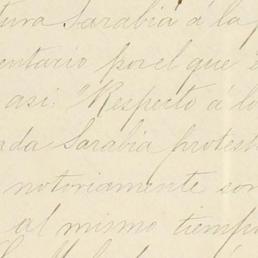 tura Sarabia á la
entario por el que
asi: "Respecto á lo
da Sarabia protest
notoriamente son
al mismo tiempo